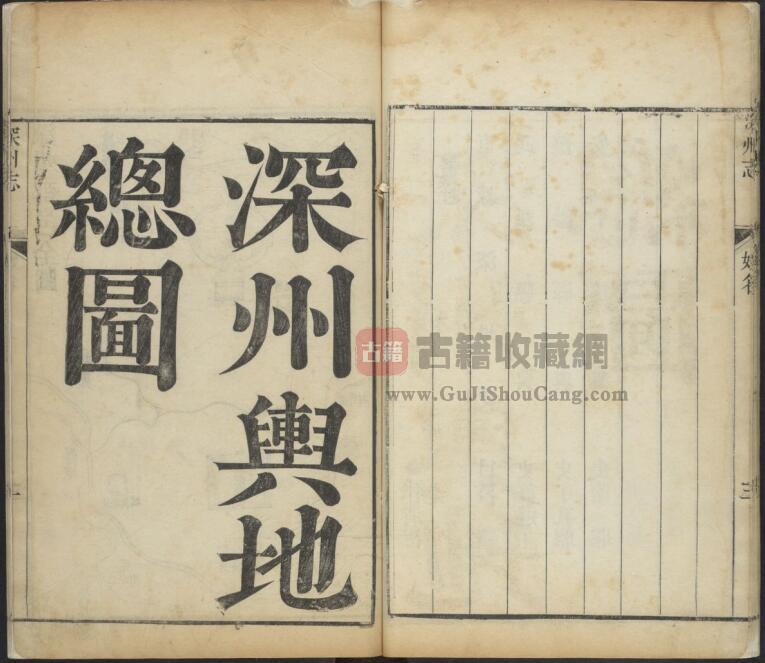 深州志
姓名
三
深州輿地
總圖
深州志
古籍
古籍收藏網
www.GuJiShouCang.com